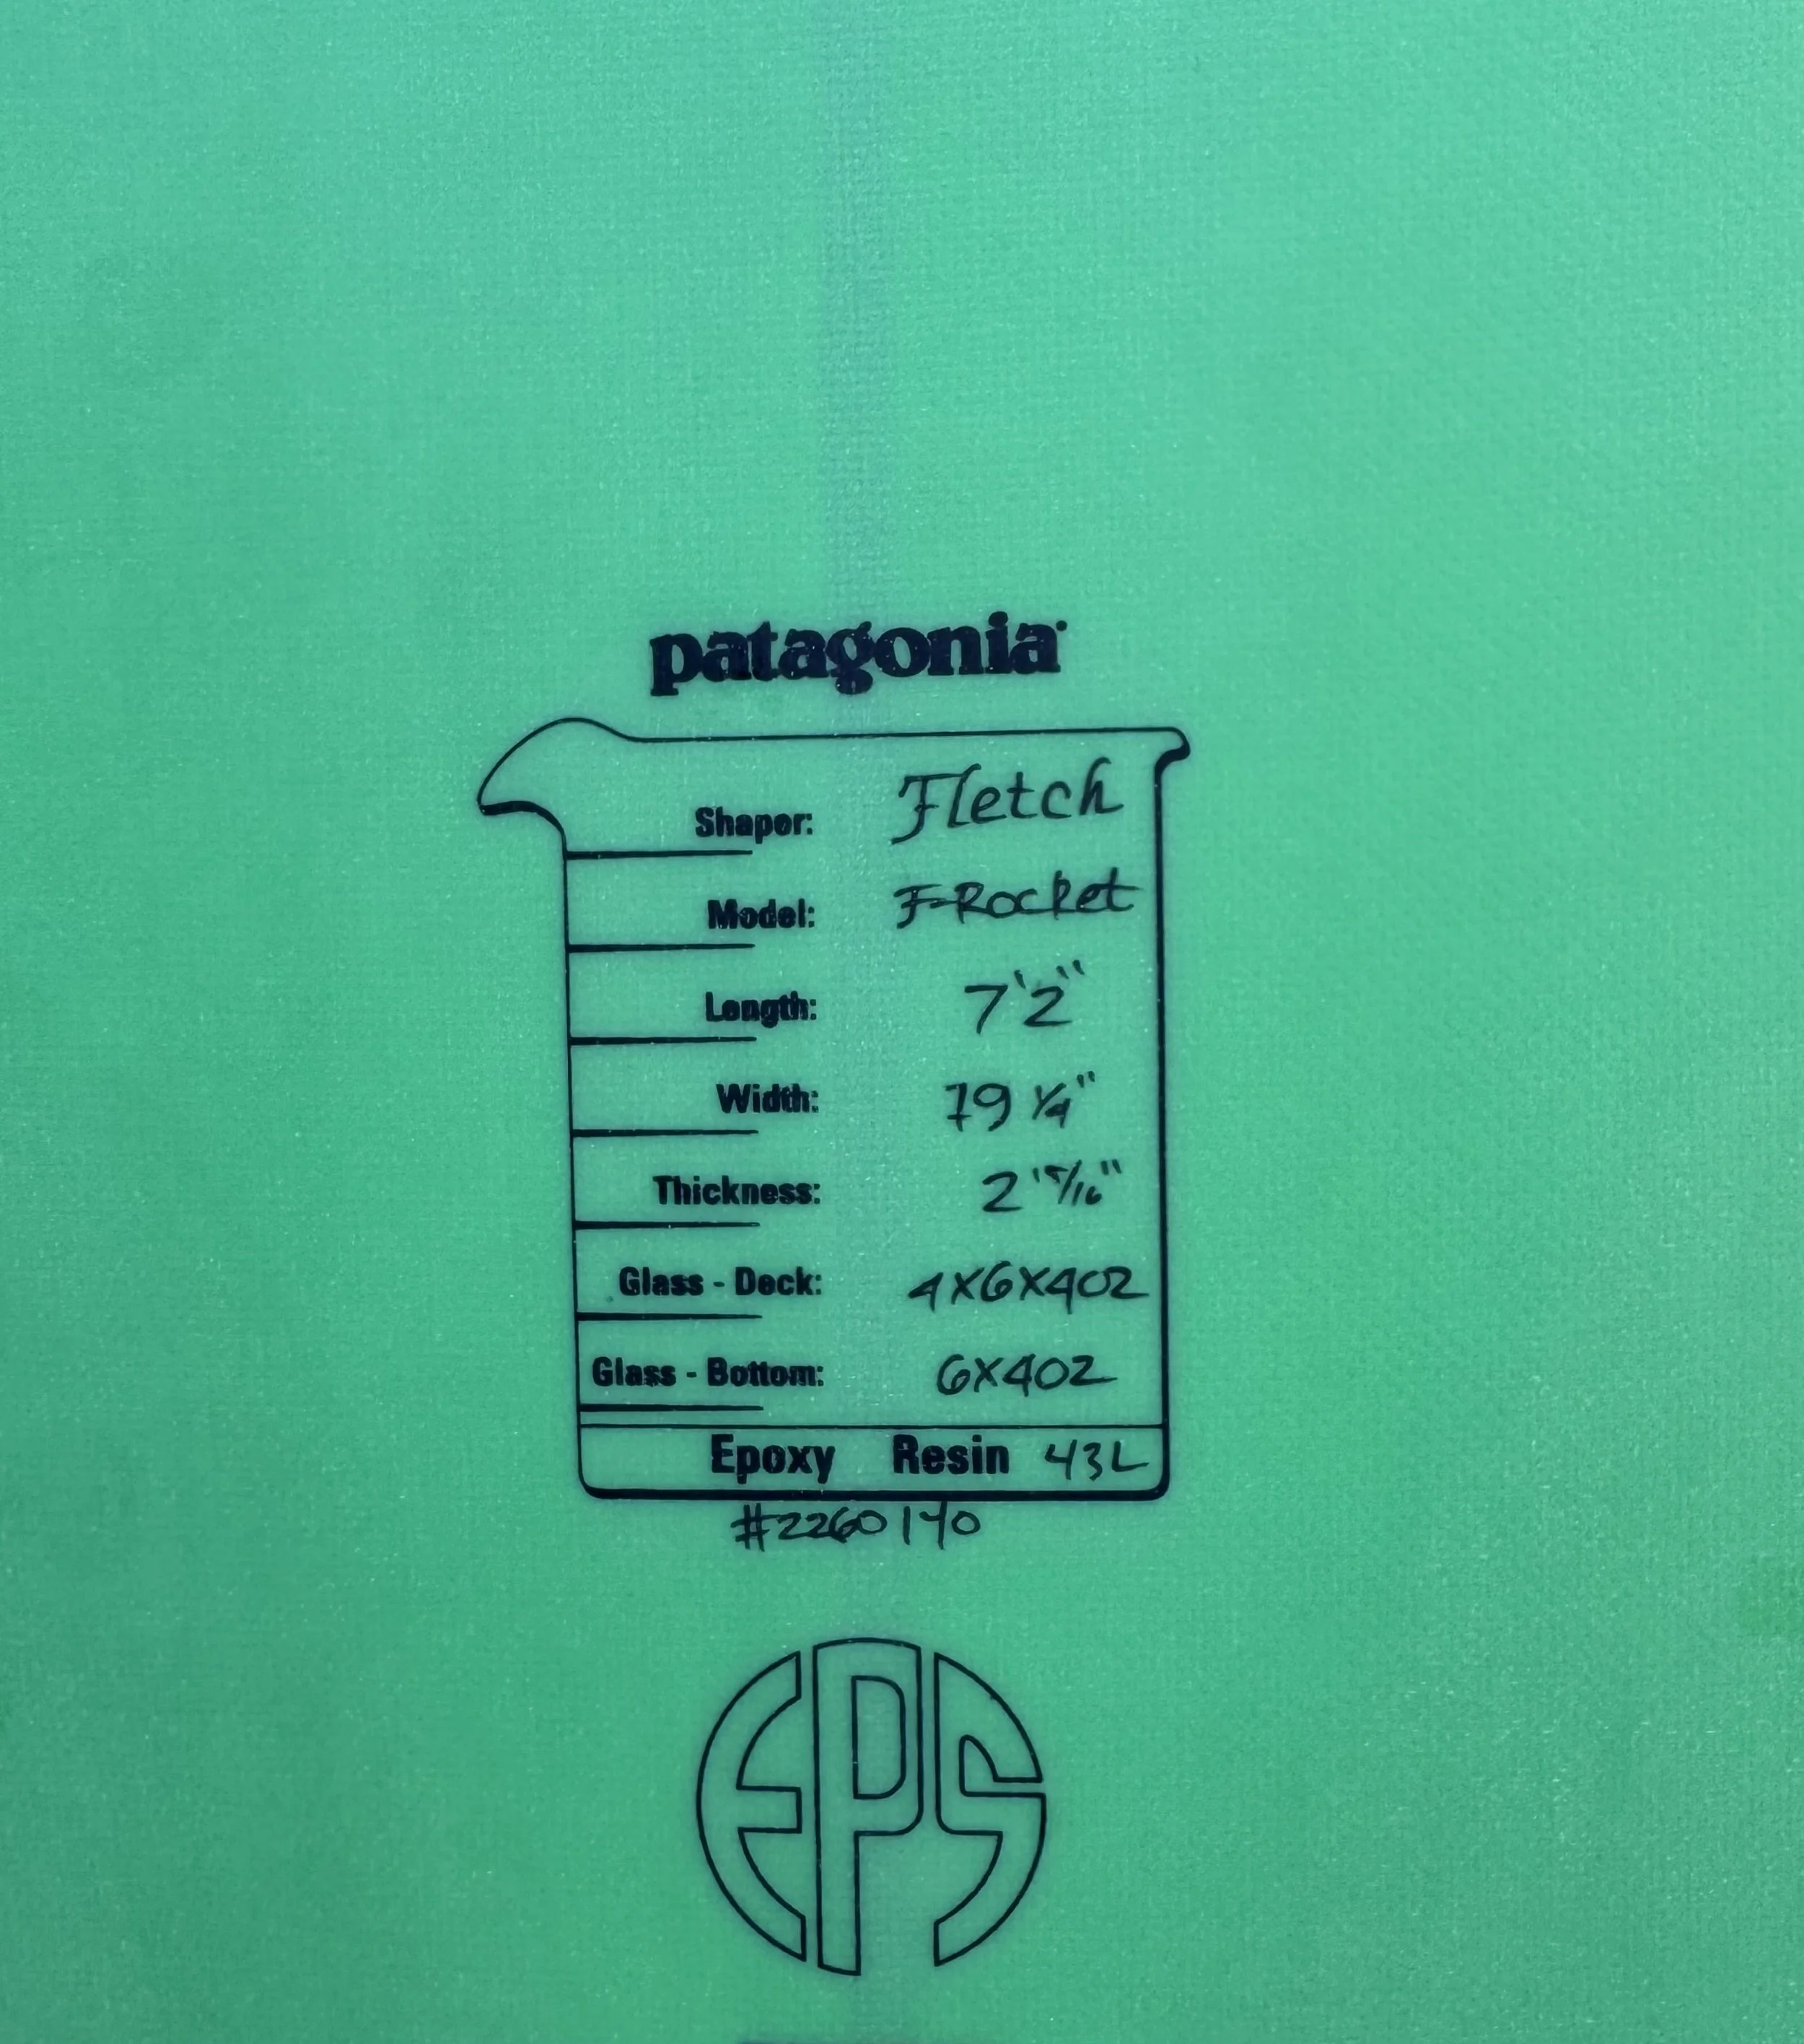 patagonia
Shaper: Fletch
Model: F-Rocket
Length: 7'2"
Width: 19 1/4"
Thickness: 2 15/16"
Glass - Deck: 4X6X4OZ
Glass - Bottom: 6X4OZ
Epoxy Resin 43L
#2260140
EPS